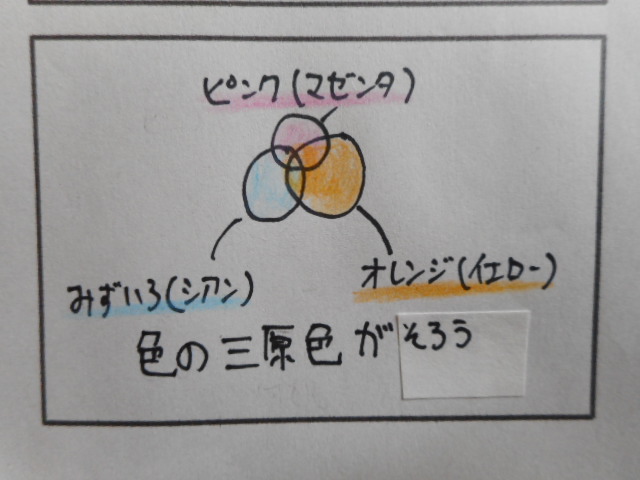 ピンク(マゼンタ)
みずいろ(シアン)
オレンジ(イエロー)
色の三原色がそろう